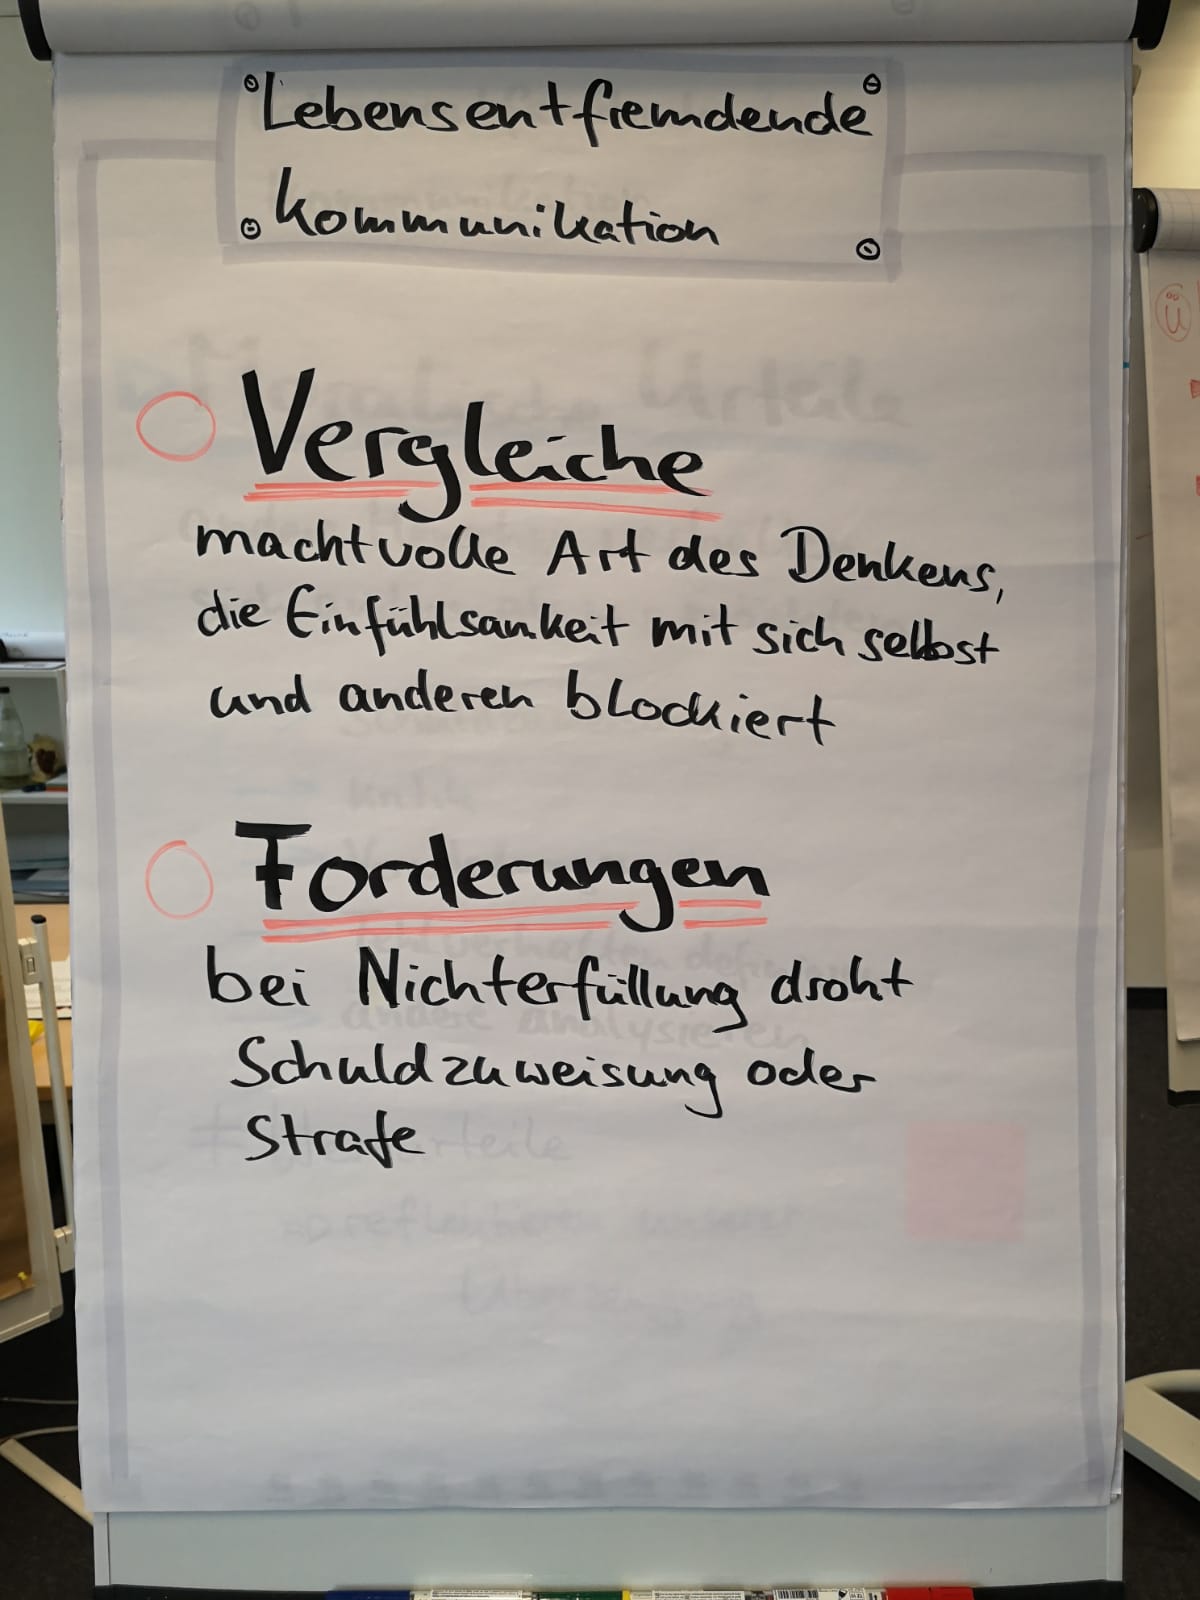 Lebensentfremdende
Kommunikation
Vergleiche
machtvolle Art des Denkens,
die Einfühlsamkeit mit sich selbst
und anderen blockiert
Forderungen
bei Nichterfüllung droht
Schuldzuweisung oder
Strafe
Ü